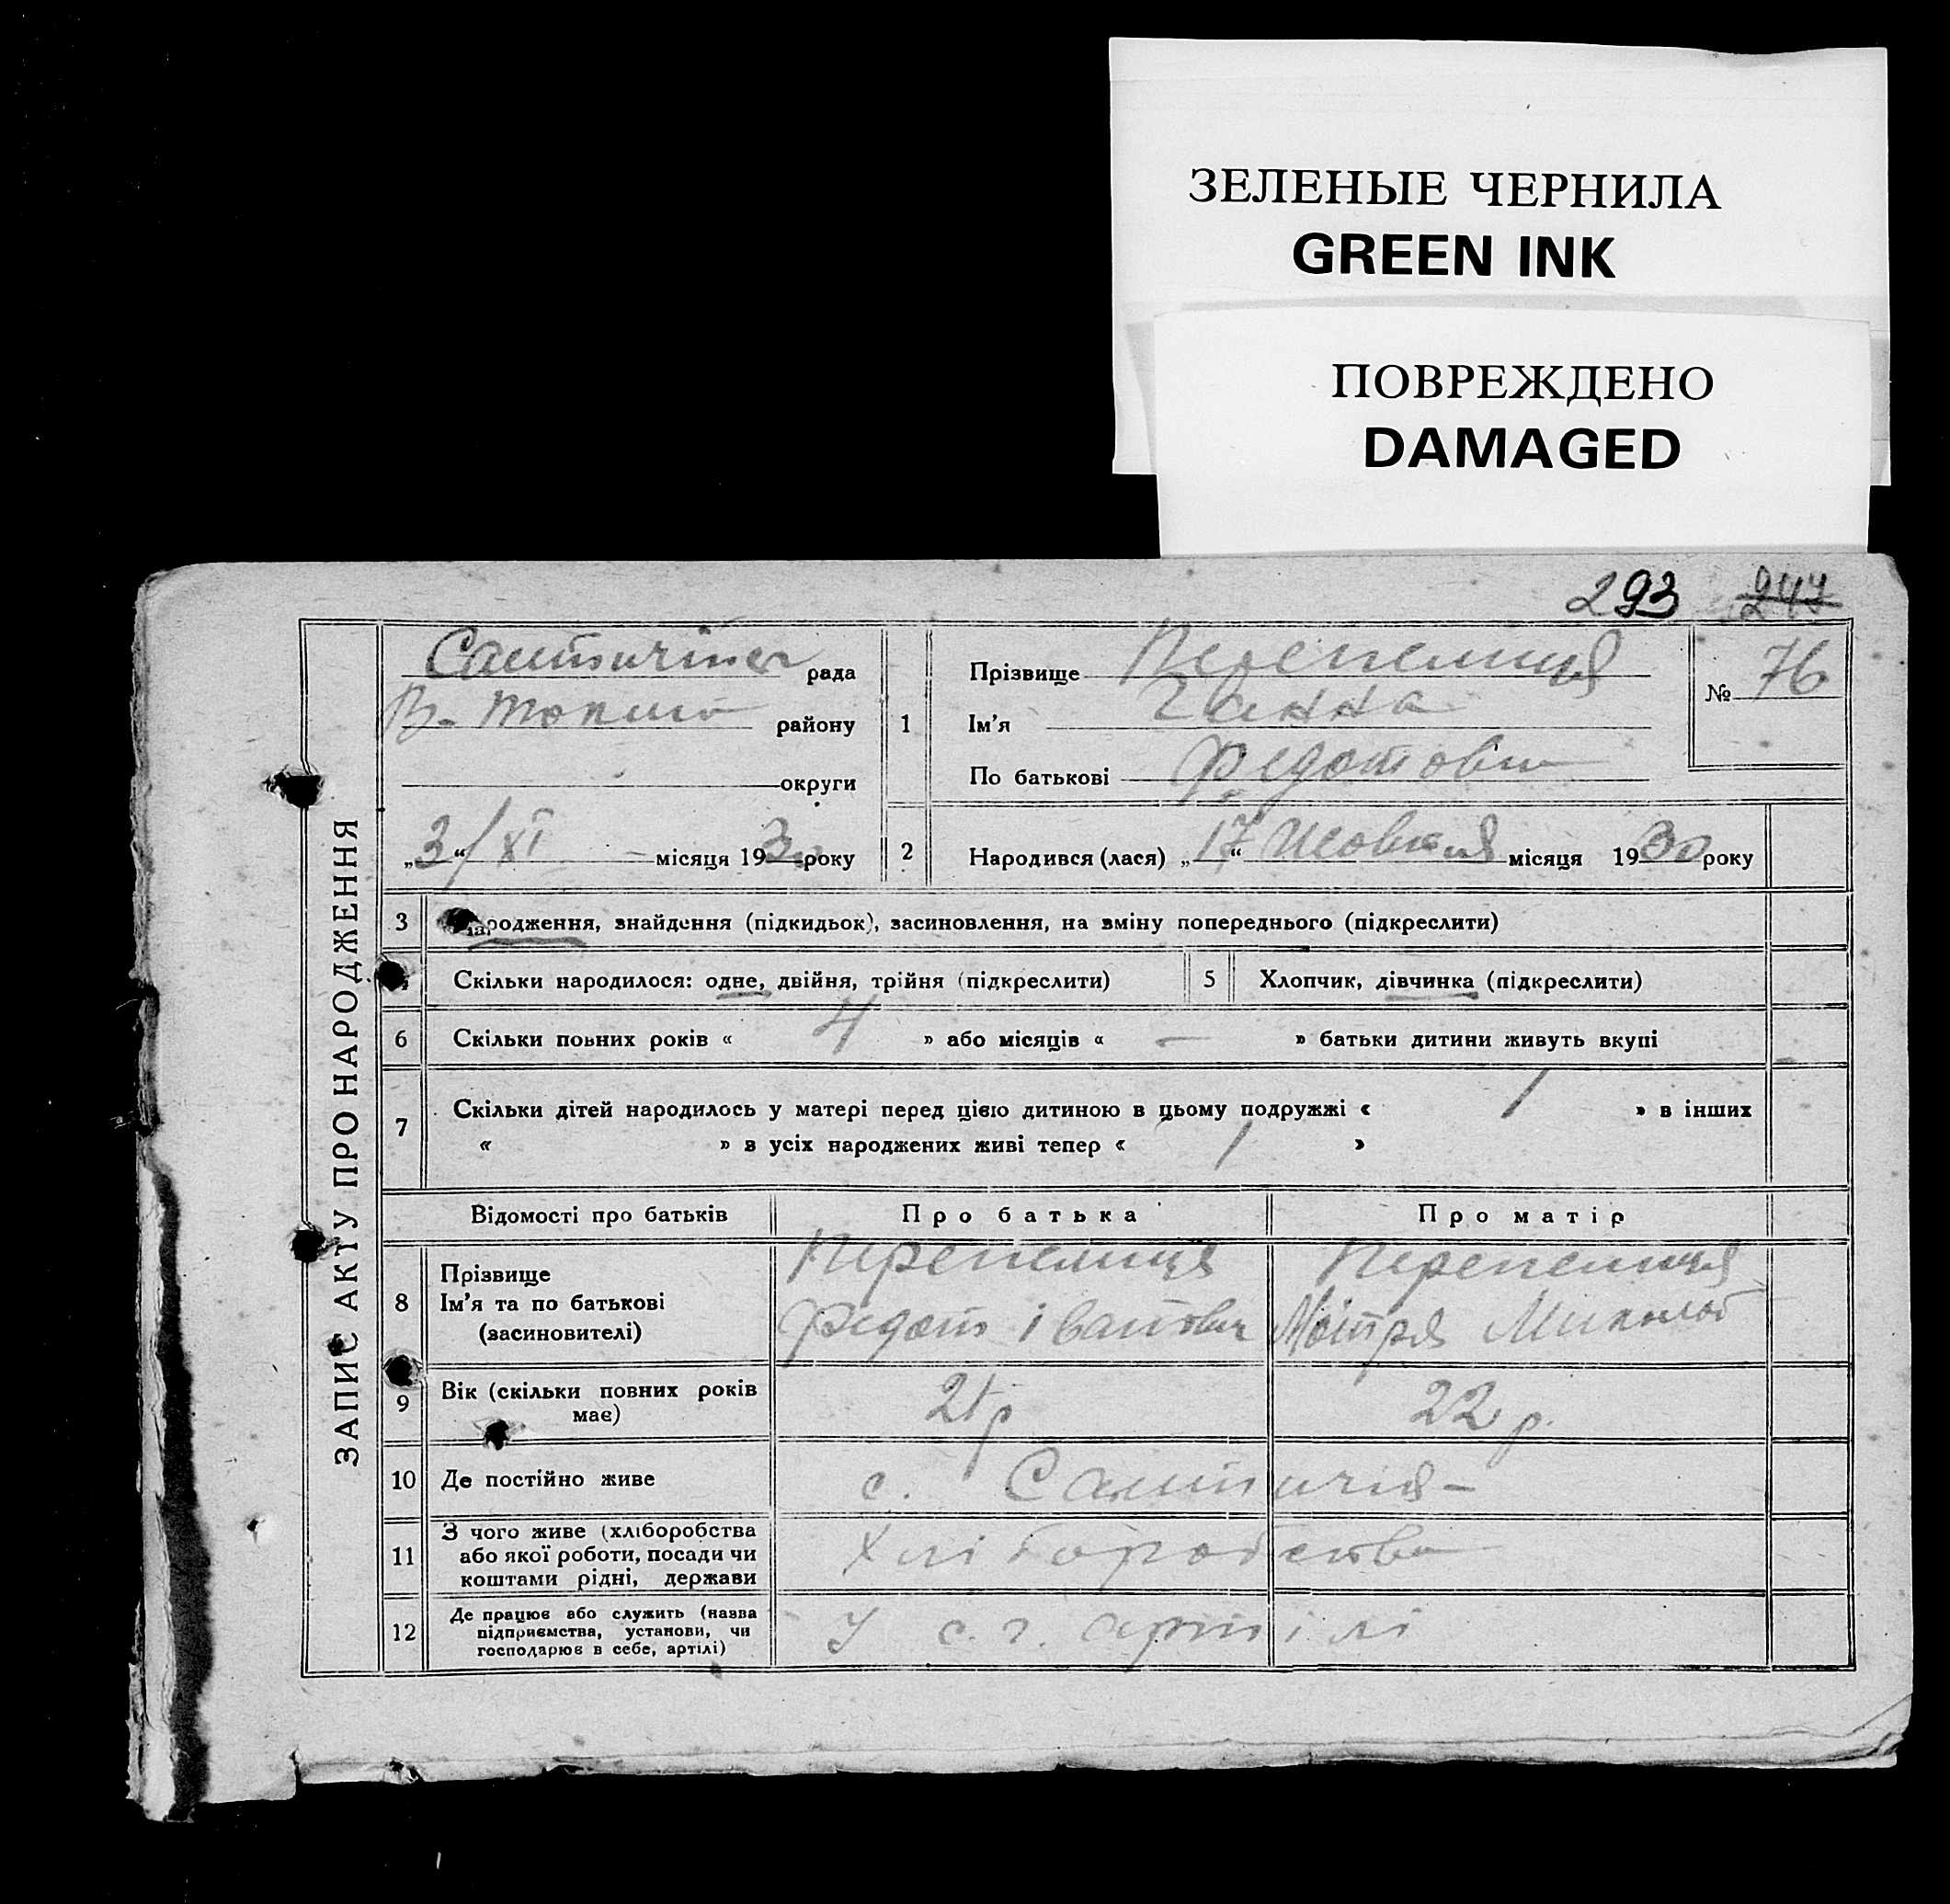 ЗЕЛЕНЫЕ ЧЕРНИЛА
GREEN INK
ПОВРЕЖДЕНО
DAMAGED
293 247
ЗАПИС АКТУ ПРО НАРОДЖЕННЯ
рада
В-Токма району
округи
„3“ XI місяця 1930 року
1
Прізвище Перепелиця
Ім'я Ганна
По батькові Федотовна
№ 76
2 Народився (лася) „17“ Жовтня місяця 1930 року
3 народження, знайдення (підкидьок), засиновлення, на зміну попереднього (підкреслити)
Скільки народилося: одне, двійня, трійня (підкреслити) 5 Хлопчик, дівчинка (підкреслити)
6 Скільки повних років « 4 » або місяців « — » батьки дитини живуть вкупі
7 Скільки дітей народилось у матері перед цією дитиною в цьому подружжі « 1 » в інших
« » в усіх народжених живі тепер « 1 »
Відомості про батьків Про батька Про матір
8 Прізвище Перепелиця Перепелиця
Ім'я та по батькові Федот Іванович Мотря
(засиновителі)
9 Вік (скільки повних років має) 21 р 22 р.
10 Де постійно живе с.
11 З чого живе (хліборобства або якої роботи, посади чи коштами рідні, держави Хліборобства
12 Де працює або служить (назва підприємства, установи, чи господарює в себе, артілі) У с. г. артілі